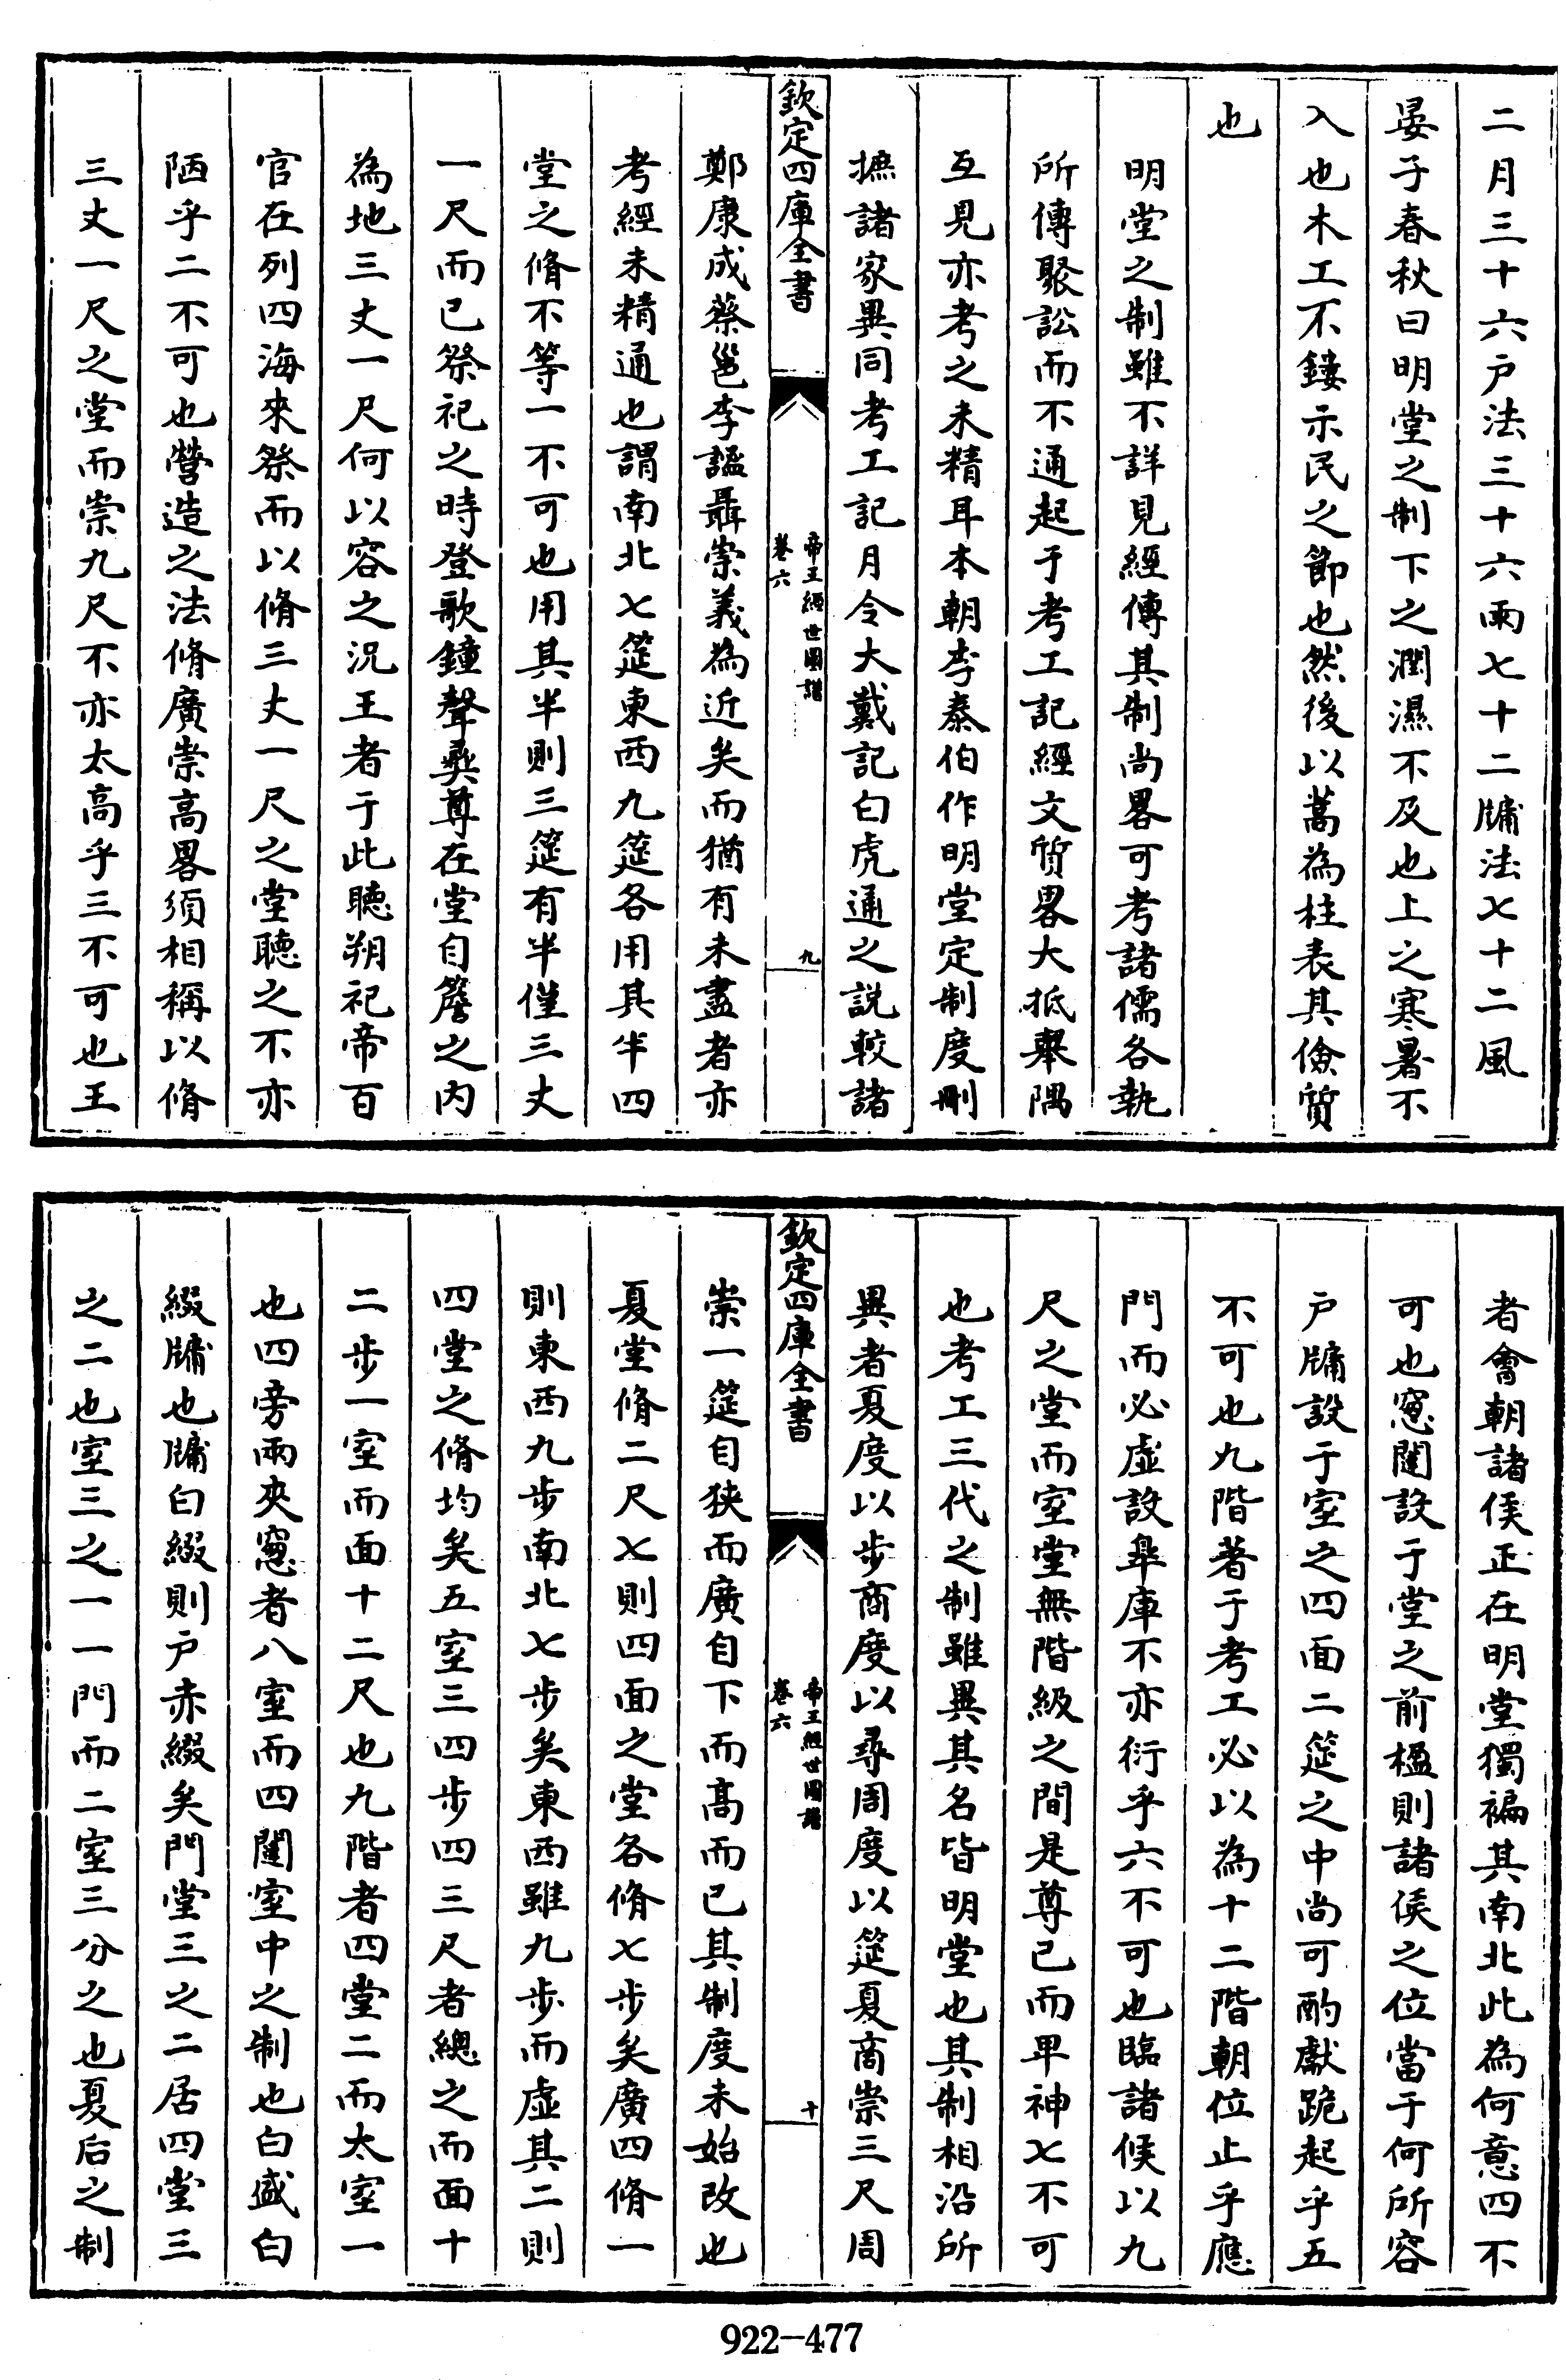 二月三十六户法三十六雨七十二牖法七十二風
晏子春秋曰明堂之制下之潤濕不及也上之寒暑不
入也木工不鏤示民之節也然後以蒿為柱表其儉質
也
明堂之制雖不詳見經傳其制尚畧可考諸儒各執
所傳聚訟而不通起于考工記經文質畧大抵舉隅
互見亦考之未精耳本朝李泰伯作明堂定制度刪
摭諸家異同考工記月令大戴記白虎通之說較諸
欽定四庫全書
帝王經世圖譜
卷六
九
鄭康成蔡邕李謐聶崇義為近矣而猶有未盡者亦
考經未精通也謂南北七筵東西九筵各用其半四
堂之脩不等一不可也用其半則三筵有半僅三丈
一尺而已祭祀之時登歌鐘聲彝尊在堂自簷之内
為地三丈一尺何以容之況王者于此聽朔祀帝百
官在列四海來祭而以脩三丈一尺之堂聽之不亦
陋乎二不可也營造之法脩廣崇高畧須相稱以脩
三丈一尺之堂而崇九尺不亦太高乎三不可也王
者會朝諸侯正在明堂獨褊其南北此為何意四不
可也窻闥設于堂之前楹則諸侯之位當于何所容
户牖設于室之四面二筵之中尚可酌獻跪起乎五
不可也九階著于考工必以為十二階朝位止乎應
門而必虛設臯庫不亦衍乎六不可也臨諸候以九
尺之堂而室堂無階級之間是尊已而卑神七不可
也考工三代之制雖異其名皆明堂也其制相沿所
異者夏度以步商度以尋周度以筵夏商崇三尺周
欽定四庫全書
帝王經世圖譜
卷六
十
崇一筵自狹而廣自下而高而已其制度未始改也
夏堂脩二尺七則四面之堂各脩七步矣廣四脩一
則東西九步南北七步矣東西雖九步而虛其二則
四堂之脩均矣五室三四步四三尺者總之而面十
二步一室而面十二尺也九階者四堂二而太室一
也四旁兩夾窻者八室而四闥室中之制也白盛白
綴牖也牖白綴則户赤綴矣門堂三之二居四堂三
之二也室三之一一門而二室三分之也夏后之制
922-477